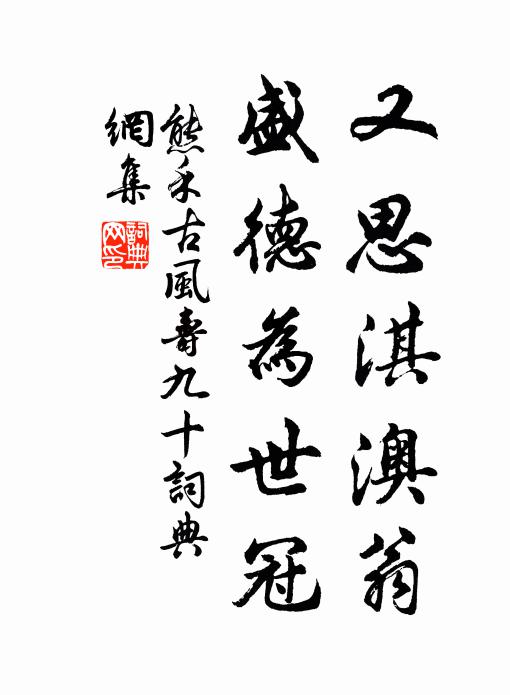 又思淇澳翁
盛德為世冠
熊禾古風壽九十詞典
網集
詞典網印